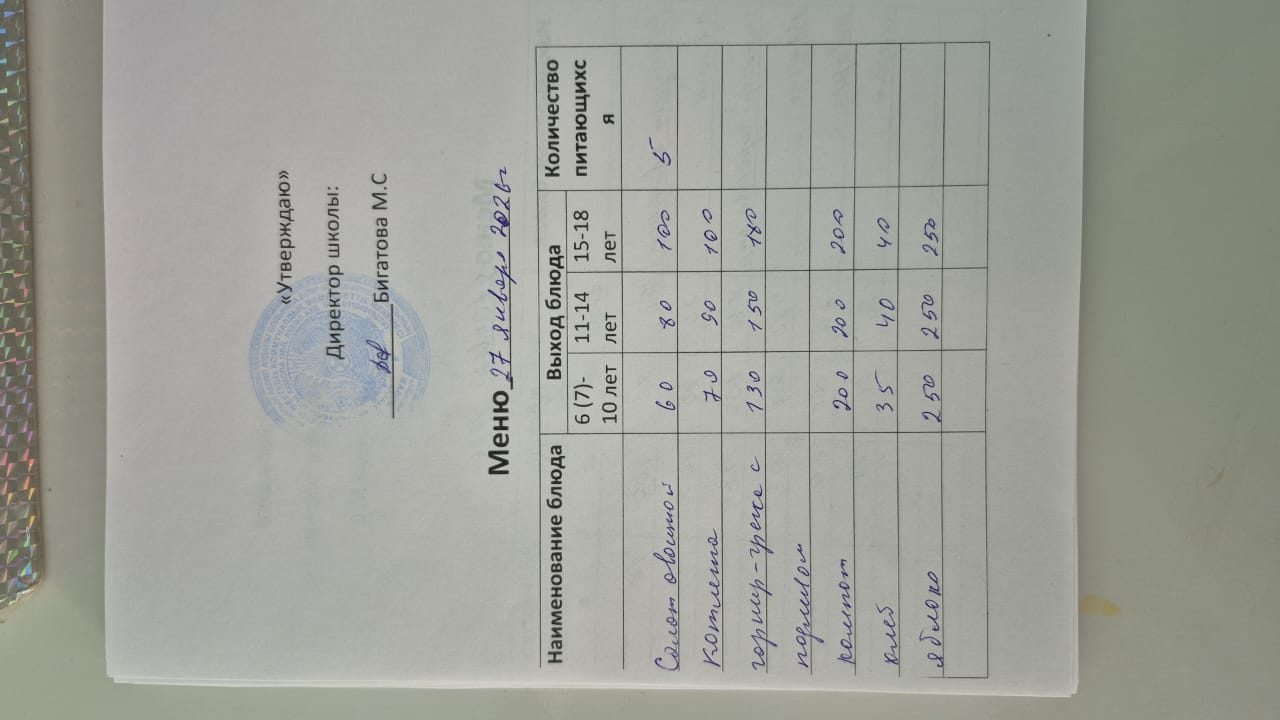 «Утверждаю»
Директор школы:
Бигатова М.С
Меню 27 января 2026г
Наименование блюда Выход блюда Количество питающихс я
6 (7)- 10 лет 11-14 лет 15-18 лет
Салат овощной 60 80 100 5
котлета 70 90 100
гарнир-гречка с 130 150 180
подливом
компот 200 200 200
хлеб 35 40 40
яблоко 250 250 250